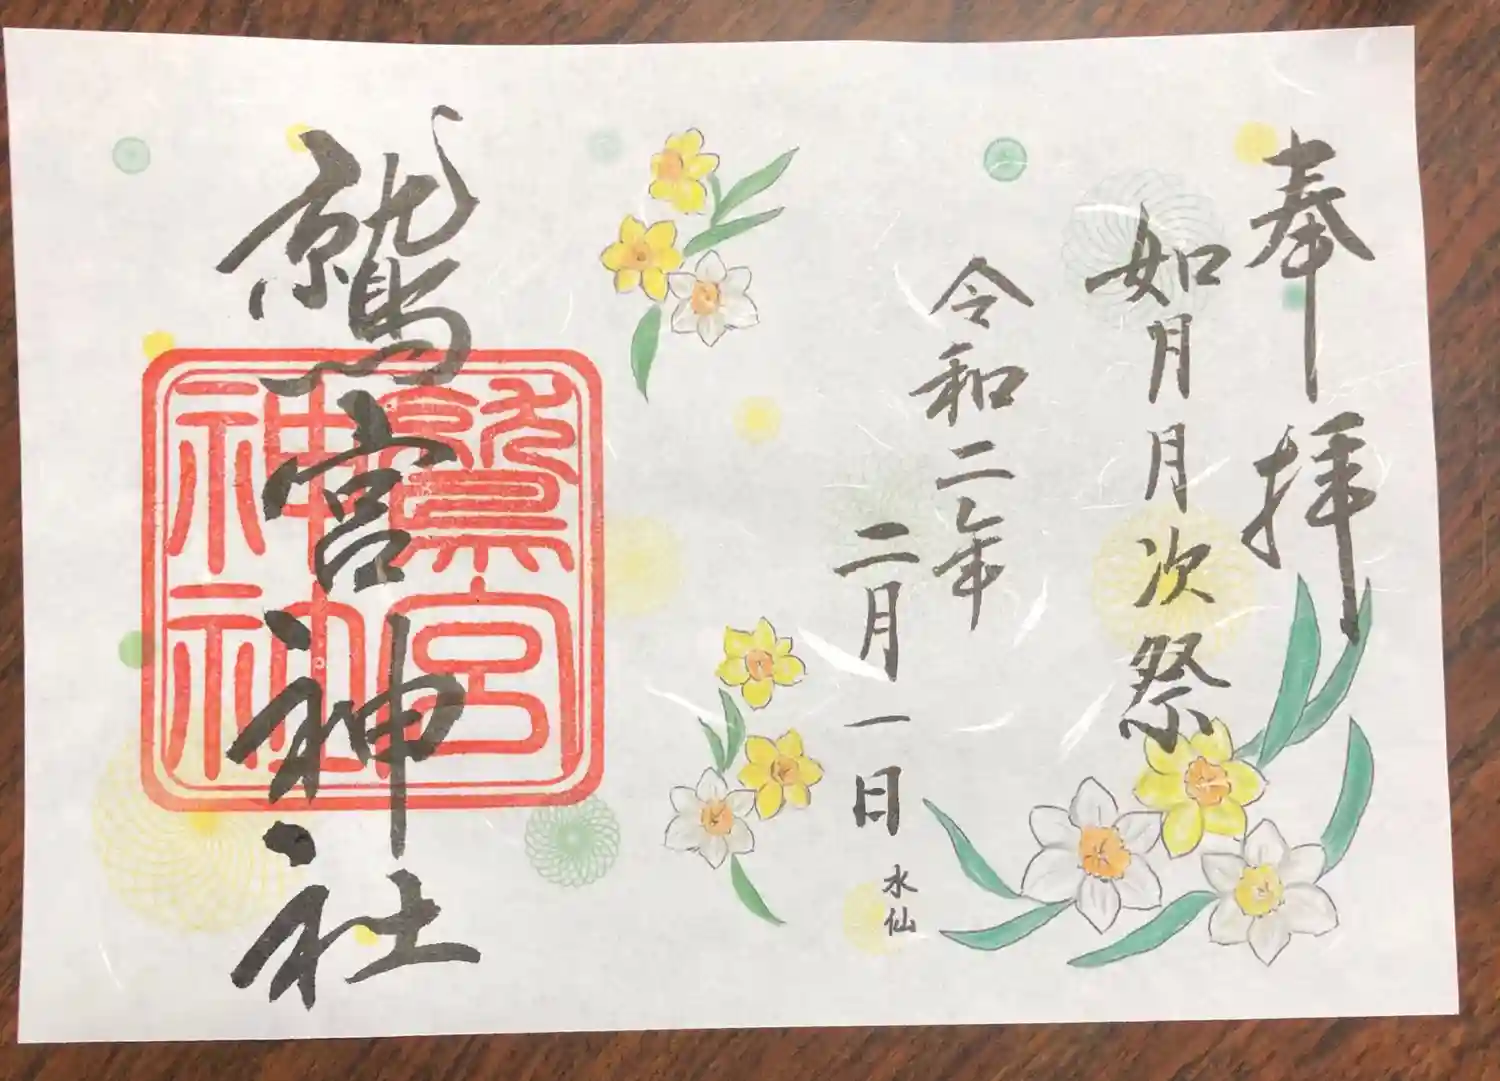 奉拝
如月月次祭
令和二年
二月一日
水仙
鷲宮神社
鷲宮神社